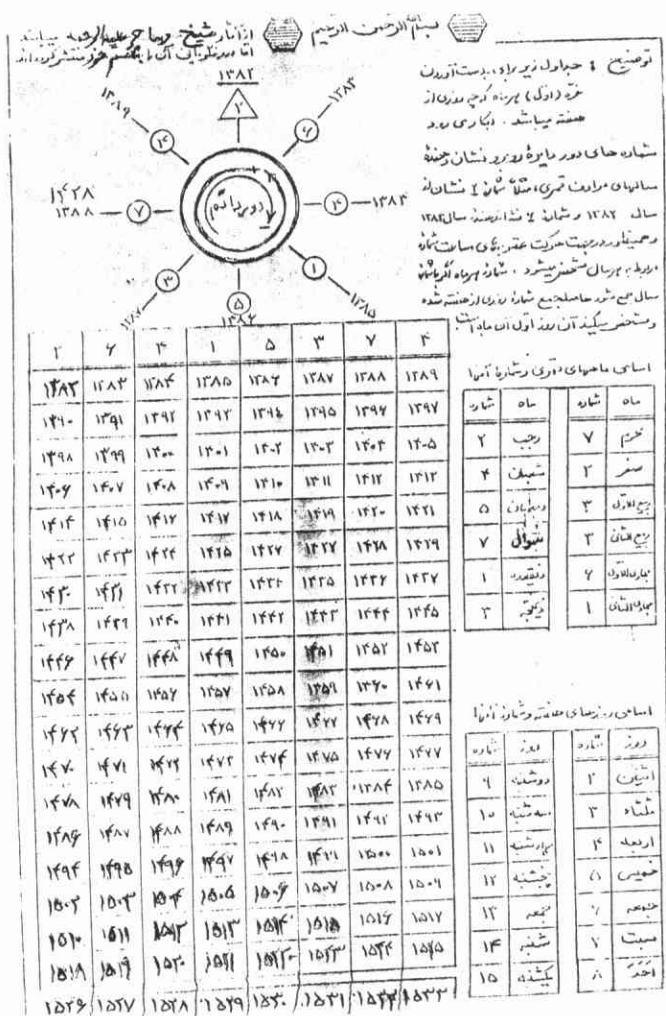 بسم الله الرحمن الرحیم
از آثار شیخ مهاجر علیه الرحمه میباشد
توضیح : جداول زیر برای بدست آوردن
غره (اول) هر ماه که چه روزی از
هفته میباشد . بکار می رود
شماره های دور دایره روبرو نشان دهندهٔ
سالهای مرادف قمری مثلاً شماره ۲ نشان از
سال ۱۳۸۲ و شماره ۶ نشاندهنده سال ۱۳۸۳
و همینطور در جهت حرکت عقربه های ساعت شماره
مربوط به هر سال مشخص میشود . شماره هر ماه اگر با شماره
سال جمع شود حاصلجمع شماره روزی از هفته شده
و مشخص میکند آن روز اول آن ماه است
۱۳۸۲
۲
۱۳۸۳
۶
۱۳۸۴
۴
۱۳۸۵
۱
۱۳۸۶
۵
۱۳۸۷
۳
۱۴۲۸
۱۳۸۸
۷
۱۳۸۹
۴
دور دائم
۲ ۶ ۴ ۱ ۵ ۳ ۷ ۴
۱۳۸۲ ۱۳۸۳ ۱۳۸۴ ۱۳۸۵ ۱۳۸۶ ۱۳۸۷ ۱۳۸۸ ۱۳۸۹
۱۳۹۰ ۱۳۹۱ ۱۳۹۲ ۱۳۹۳ ۱۳۹۴ ۱۳۹۵ ۱۳۹۶ ۱۳۹۷
۱۳۹۸ ۱۳۹۹ ۱۴۰۰ ۱۴۰۱ ۱۴۰۲ ۱۴۰۳ ۱۴۰۴ ۱۴۰۵
۱۴۰۶ ۱۴۰۷ ۱۴۰۸ ۱۴۰۹ ۱۴۱۰ ۱۴۱۱ ۱۴۱۲ ۱۴۱۳
۱۴۱۴ ۱۴۱۵ ۱۴۱۶ ۱۴۱۷ ۱۴۱۸ ۱۴۱۹ ۱۴۲۰ ۱۴۲۱
۱۴۲۲ ۱۴۲۳ ۱۴۲۴ ۱۴۲۵ ۱۴۲۶ ۱۴۲۷ ۱۴۲۸ ۱۴۲۹
۱۴۳۰ ۱۴۳۱ ۱۴۳۲ ۱۴۳۳ ۱۴۳۴ ۱۴۳۵ ۱۴۳۶ ۱۴۳۷
۱۴۳۸ ۱۴۳۹ ۱۴۴۰ ۱۴۴۱ ۱۴۴۲ ۱۴۴۳ ۱۴۴۴ ۱۴۴۵
۱۴۴۶ ۱۴۴۷ ۱۴۴۸ ۱۴۴۹ ۱۴۵۰ ۱۴۵۱ ۱۴۵۲ ۱۴۵۳
۱۴۵۴ ۱۴۵۵ ۱۴۵۶ ۱۴۵۷ ۱۴۵۸ ۱۴۵۹ ۱۴۶۰ ۱۴۶۱
۱۴۶۲ ۱۴۶۳ ۱۴۶۴ ۱۴۶۵ ۱۴۶۶ ۱۴۶۷ ۱۴۶۸ ۱۴۶۹
۱۴۷۰ ۱۴۷۱ ۱۴۷۲ ۱۴۷۳ ۱۴۷۴ ۱۴۷۵ ۱۴۷۶ ۱۴۷۷
۱۴۷۸ ۱۴۷۹ ۱۴۸۰ ۱۴۸۱ ۱۴۸۲ ۱۴۸۳ ۱۴۸۴ ۱۴۸۵
۱۴۸۶ ۱۴۸۷ ۱۴۸۸ ۱۴۸۹ ۱۴۹۰ ۱۴۹۱ ۱۴۹۲ ۱۴۹۳
۱۴۹۴ ۱۴۹۵ ۱۴۹۶ ۱۴۹۷ ۱۴۹۸ ۱۴۹۹ ۱۵۰۰ ۱۵۰۱
۱۵۰۲ ۱۵۰۳ ۱۵۰۴ ۱۵۰۵ ۱۵۰۶ ۱۵۰۷ ۱۵۰۸ ۱۵۰۹
۱۵۱۰ ۱۵۱۱ ۱۵۱۲ ۱۵۱۳ ۱۵۱۴ ۱۵۱۵ ۱۵۱۶ ۱۵۱۷
۱۵۱۸ ۱۵۱۹ ۱۵۲۰ ۱۵۲۱ ۱۵۲۲ ۱۵۲۳ ۱۵۲۴ ۱۵۲۵
۱۵۲۶ ۱۵۲۷ ۱۵۲۸ ۱۵۲۹ ۱۵۳۰ ۱۵۳۱ ۱۵۳۲ ۱۵۳۳
اسامی ماههای قمری و شمارهٔ آنها
ماه شماره ماه شماره
محرم ۷ رجب ۲
صفر ۲ شعبان ۴
ربیع الاول ۳ رمضان ۵
ربیع الثانی ۳ شوال ۷
جمادی الاول ۶ ذیقعده ۱
جمادی الثانی ۱ ذیحجه ۳
اسامی روزهای هفته و شماره آنها
روز شماره روز شماره
اثنین ۲ دوشنبه ۹
ثلثاء ۳ سه شنبه ۱۰
اربعه ۴ چهارشنبه ۱۱
خمیس ۵ پنجشنبه ۱۲
جمعه ۶ جمعه ۱۳
سبت ۷ شنبه ۱۴
احد ۸ یکشنبه ۱۵